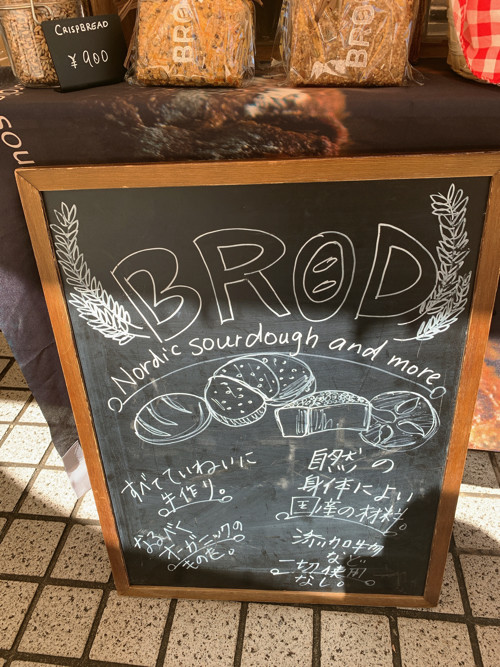 CRISPBREAD
¥900
BROD
BROD
BRØD
Nordic sourdough and more
すべてていねいに
手作り。
なるべく
オーガニックの
きのだ。
自然の
身体によい
国産の材料。
添加物
など
一切使用
なし。